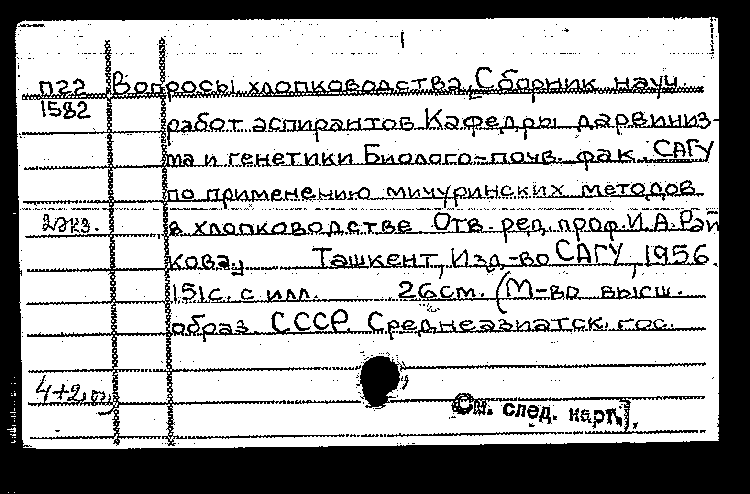 1
П22 Вопросы хлопководства. Сборник науч.
1582
работ аспирантов Кафедры дарвиниз-
ма и генетики Биолого-почв. фак. САГУ
по применению мичуринских методов
2экз. в хлопководстве Отв. ред. проф. И.А. Рай
кова., Ташкент, Изд-во САГУ, 1956.
151с. с илл. 26см. (М-во высш.
образ. СССР Среднеазиатск. гос.
4+2
См. след. карт.